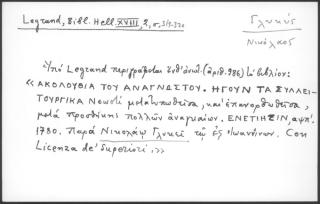 Legrand, Bibl. Hell. XVIII, 2, σ. 319-320
Γλυκύς
Νικόλαος
Ὑπὸ Legrand περιγράφεται ἔνθ' ἀνωτ. (ἀριθ. 986) τὸ βιβλίον:
« ΑΚΟΛΟΥΘΙΑ ΤΟΥ ΑΝΑΓΝΩΣΤΟΥ. ΗΓΟΥΝ ΤΑ ΣΥΛΛΕΙ-
ΤΟΥΡΓΙΚΑ Νεωστὶ μετατυπωθεῖσα, καὶ ἐπανορθωθεῖσα,
μετὰ προσθήκης πολλῶν ἀναγκαίων. ΕΝΕΤΙΗΣΙΝ, αψπ'.
1780. Παρὰ Νικολάῳ Γλυκεῖ τῷ ἐξ Ἰωαννίνων. Con
Licenza de' Superiori,»